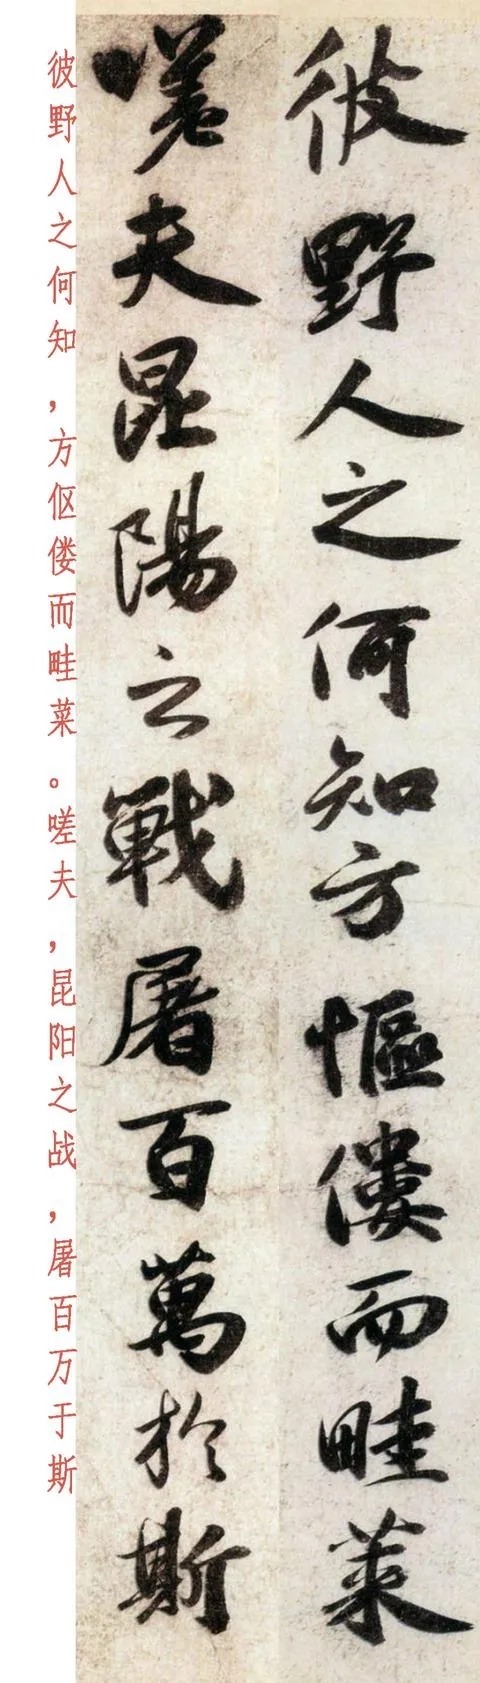 彼野人之何知方傴僂而畦菜
嗟夫昆陽之戰屠百萬於斯
彼野人之何知，方伛偻而畦菜。嗟夫，昆阳之战，屠百万于斯